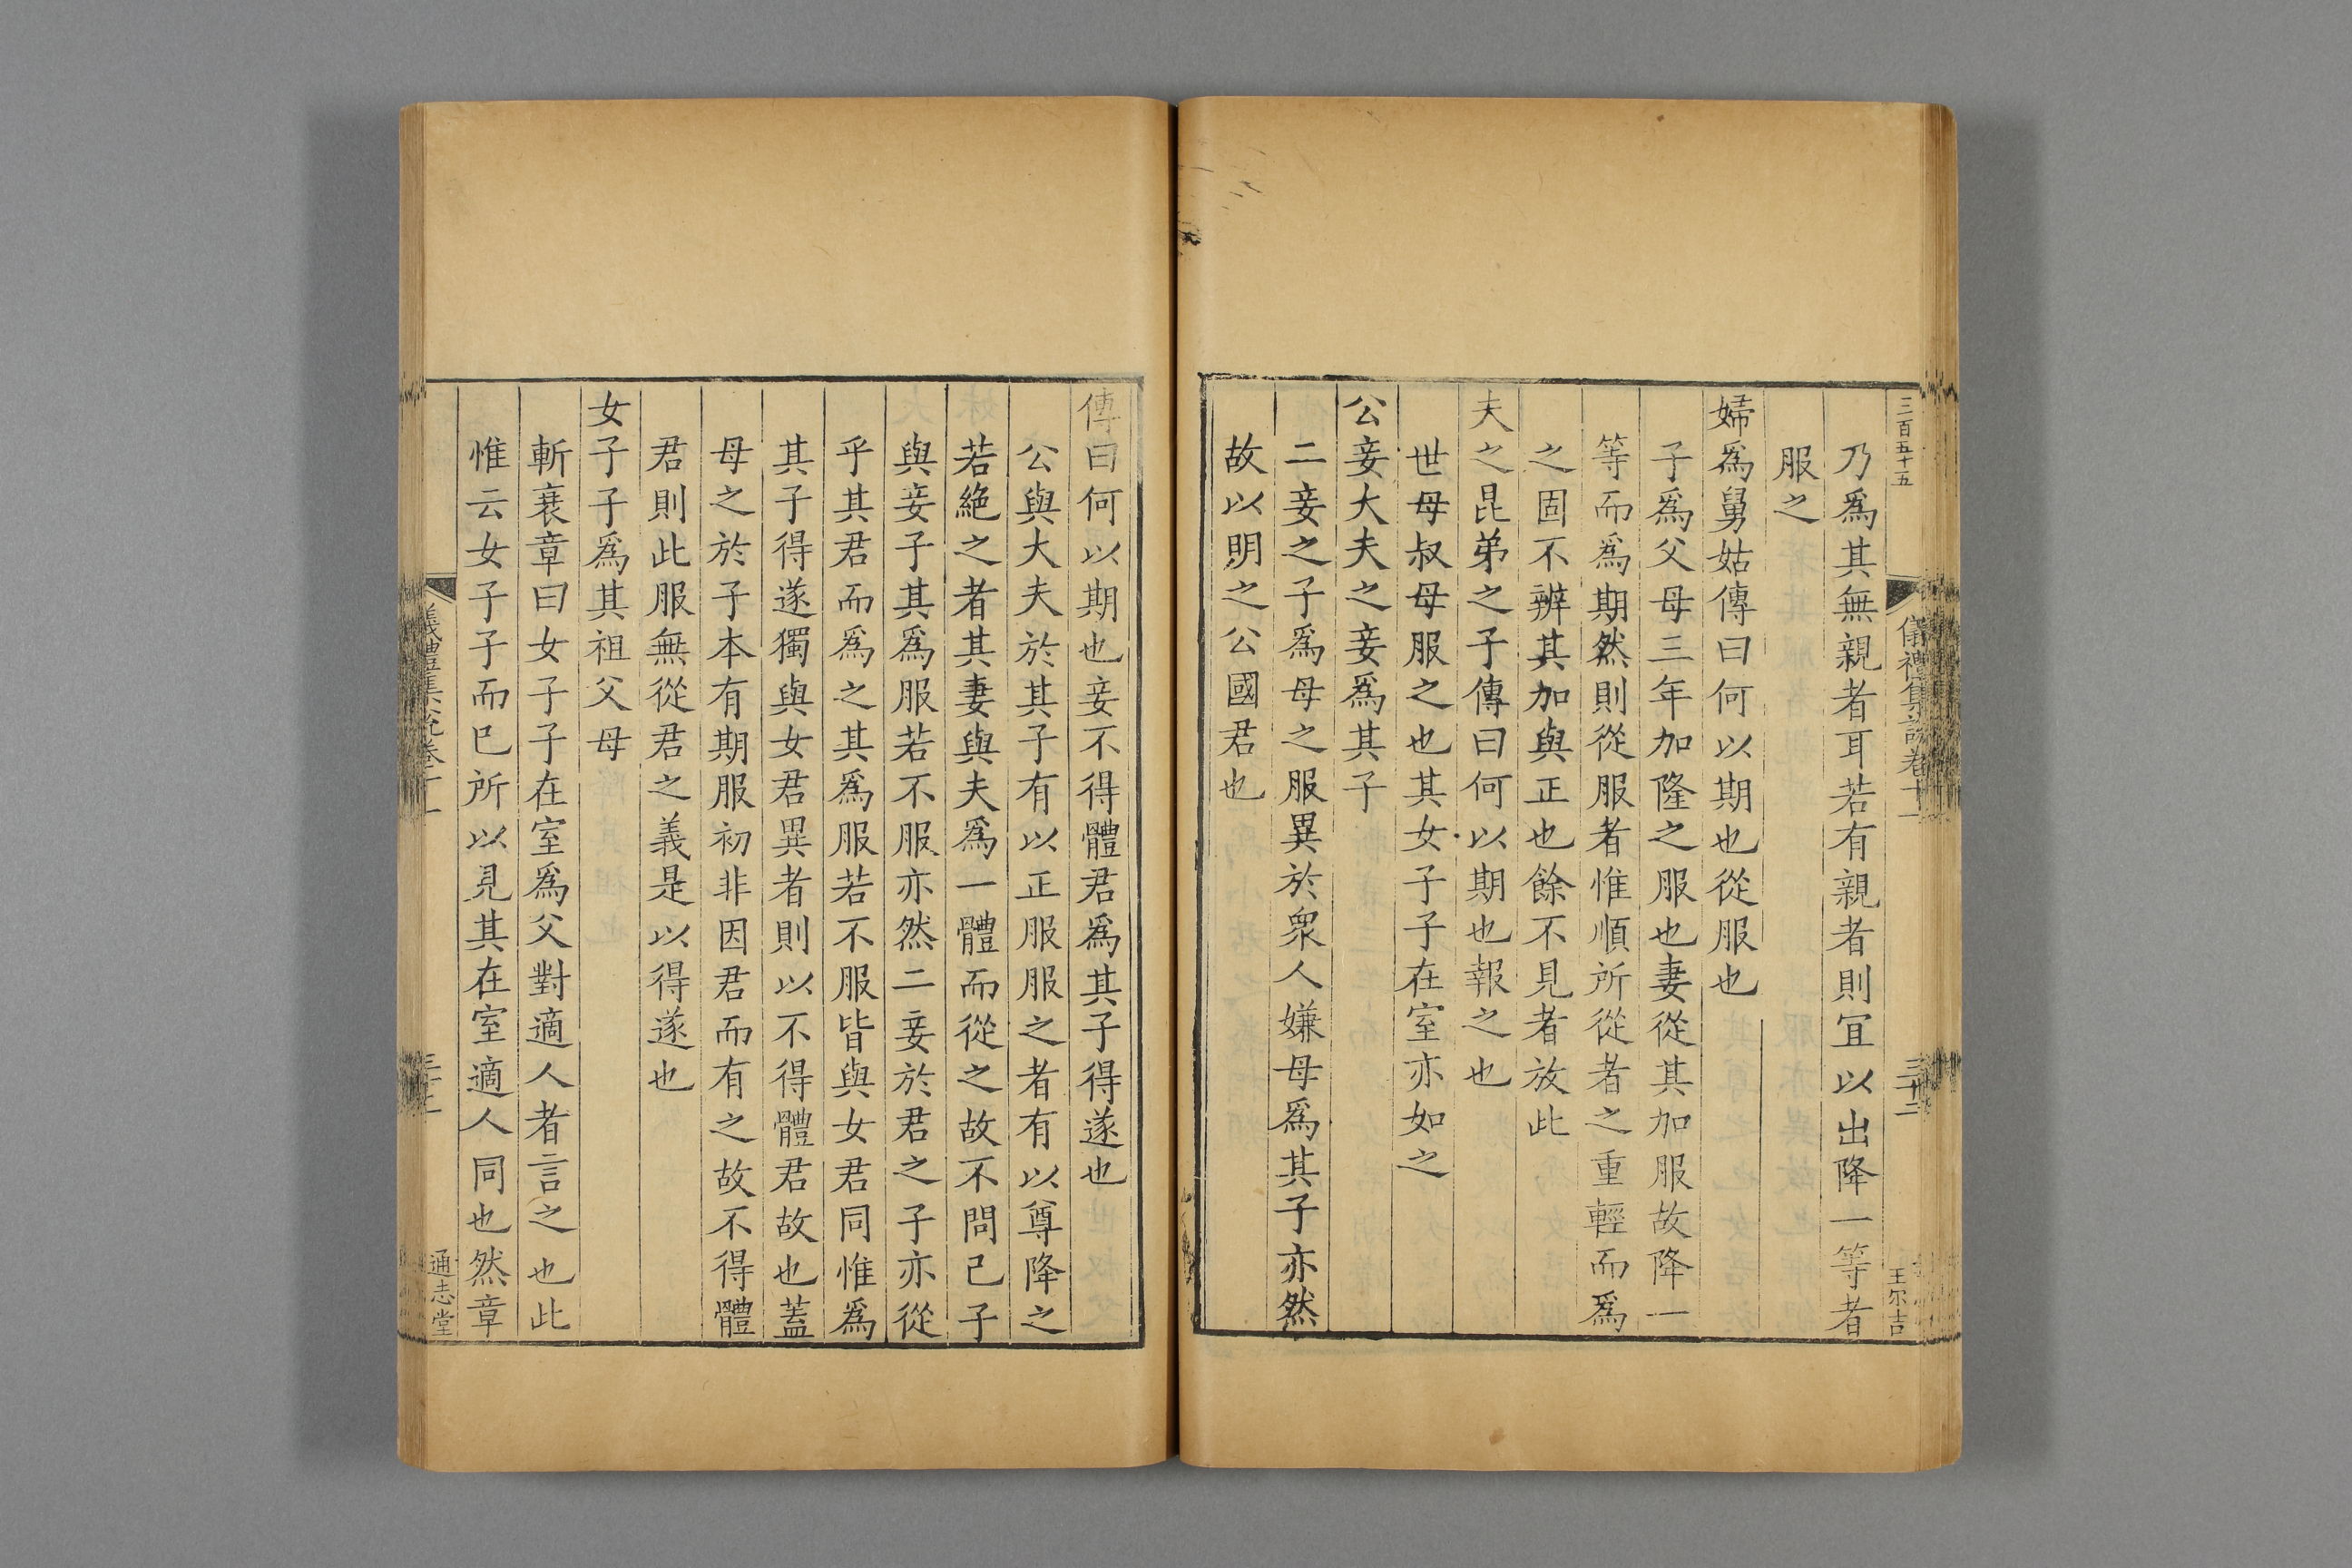 三百五十五
儀禮集說卷十一
三十二
王尔吉
乃爲其無親者耳若有親者則宜以出降一等者
服之
婦爲舅姑傳曰何以期也從服也
子爲父母三年加隆之服也妻從其加服故降一
等而爲期然則從服者惟順所從者之重輕而爲
之固不辨其加與正也餘不見者放此
夫之昆弟之子傳曰何以期也報之也
世母叔母服之也其女子子在室亦如之
公妾大夫之妾爲其子
二妾之子爲母之服異於衆人嫌母爲其子亦然
故以明之公國君也
傳曰何以期也妾不得體君爲其子得遂也
公與大夫於其子有以正服服之者有以尊降之
若絶之者其妻與夫爲一體而從之故不問己子
與妾子其爲服若不服亦然二妾於君之子亦從
乎其君而爲之其爲服若不服皆與女君同惟爲
其子得遂獨與女君異者則以不得體君故也蓋
母之於子本有期服初非因君而有之故不得體
君則此服無從君之義是以得遂也
女子子爲其祖父母
斬衰章曰女子子在室爲父對適人者言之也此
惟云女子子而已所以見其在室適人同也然章
儀禮集說卷十一
通志堂